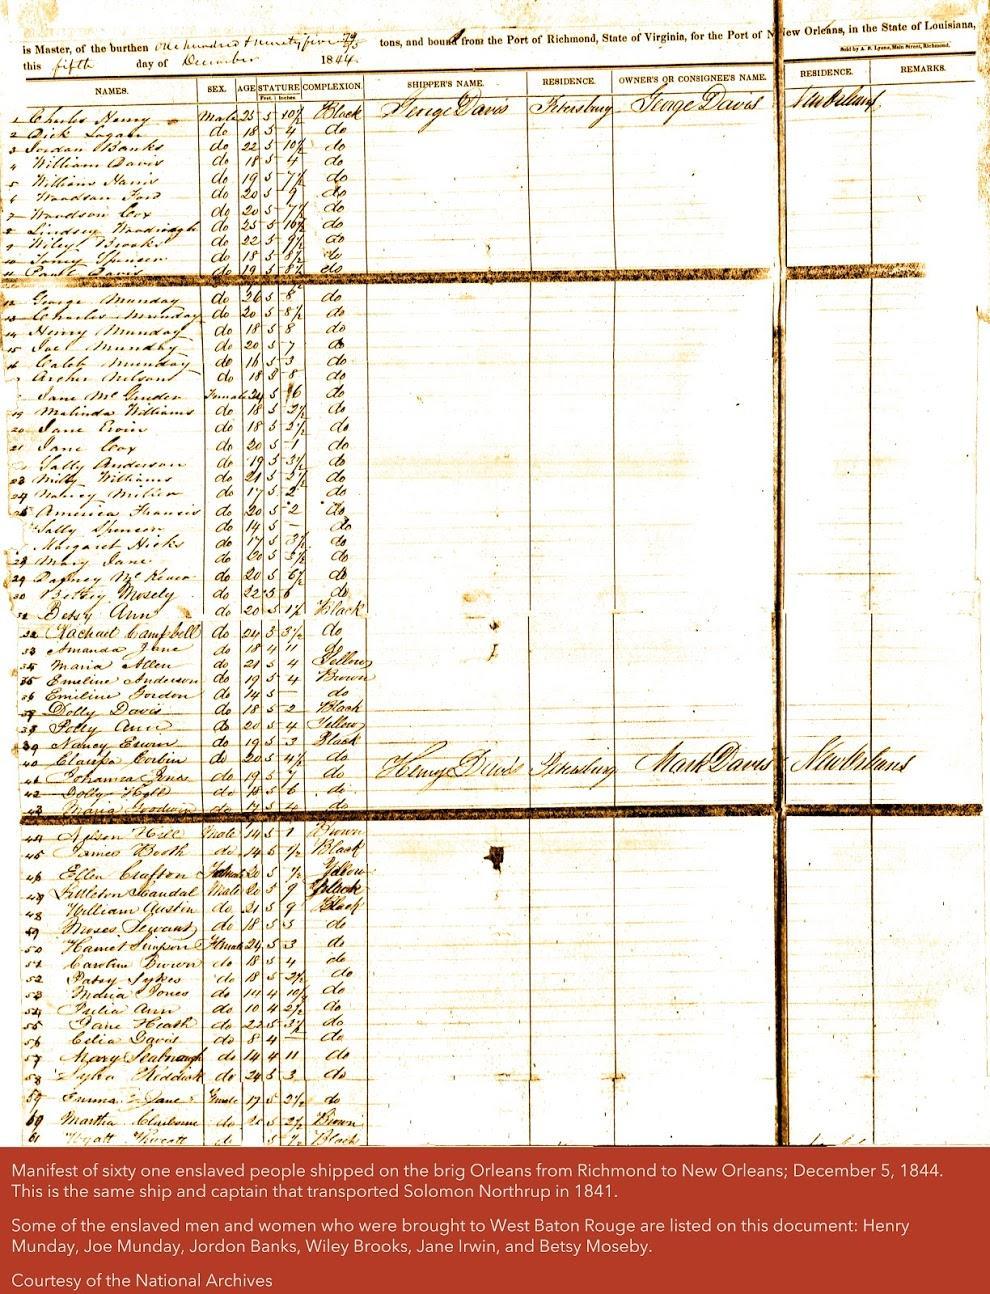 is Master, of the burthen one hundred & ninety five 79/95 tons, and bound from the Port of Richmond, State of Virginia, for the Port of New Orleans, in the State of Louisiana,
this fifth day of December 1844.
Sold by A. S. Lyons, Main Street, Richmond.
NAMES. SEX. AGE STATURE COMPLEXION. SHIPPER'S NAME. RESIDENCE. OWNER'S OR CONSIGNEE'S NAME. RESIDENCE. REMARKS.
Feet. Inches
1 Charles Henry Male 25 5 10½ Black George Davis Petersburg George Davis New Orleans
2 Dick Logan do 18 5 4 do
3 Jordan Banks do 22 5 10½ do
4 William Davis do 18 5 4 do
5 William Harris do 19 5 7½ do
6 Woodson Ford do 20 5 do
7 Woodson Cox do 20 5 7½ do
8 Lindsey do 25 5 10½ do
9 Wiley Brooks do 22 5 9½ do
10 Spencer do 18 5 8½ do
11 Davis do 19 5 8½ do
12 George Munday do 26 5 8 do
13 Charles Munday do 20 5 8½ do
14 Henry Munday do 18 5 8 do
15 Joe Munday do 20 5 7 do
16 Caleb Munday do 16 5 3 do
Archer Nelson do 18 5 8 do
Jane Female 24 5 6 do
19 Malinda Williams do 18 5 2½ do
20 Jane Erwin do 18 5 do
21 Jane Cox do 20 5 1 do
Sally Anderson do 19 5 3½ do
23 Milly Williams do 21 5 do
24 Nancy do 17 5 2 do
25 America Francis do 20 5 2 do
Sally Spencer do 14 5 — do
Margaret Hicks do 17 5 do
28 Mary Jane do 20 5 do
29 do 20 5 6½ do
30 Betsey Mosely do 22 5 6 do
31 Betsy Ann do 20 5 1½ Black
32 Rachael Campbell do 24 5 3½ do
33 Amanda Jane do 18 4 11 do
34 Maria Allen do 21 5 4 Yellow
35 Emeline Anderson do 19 5 4 Brown
36 Emiline Gordon do 14 5 — do
37 Dolly Davis do 18 5 2 Black
38 Polly Ann do 20 5 4 Yellow
39 Nancy Erwin do 19 5 3 Black
40 Corbin do 20 5 4½ do Henry Davis Petersburg Mark Davis New Orleans
41 Johanna Jones do 19 5 do
42 Dolly do 18 5 6 do
43 Maria Goodwin do 17 5 do
44 Hill Male 14 5 1 Brown
45 James Booth do 14 5 ½ Black
46 Ellen Crafton Female 20 5 ½ Yellow
47 Littleton Randal Male 20 5 9 Black
48 William Austin do 21 5 9 Black
49 Moses do 18 5 5 do
50 Harriet Simpson Female 24 5 3 do
51 Caroline Brown do 18 5 4 do
52 Patsy Sykes do 18 5 2½ do
53 Maria Jones do 14 4 10½ do
54 Julia Ann do 10 4 2½ do
55 Jane Heath do 22 5 3½ do
56 Celia Davis do 8 4 — do
57 Mary do 14 4 11 do
58 Riddick do 24 5 3 do
59 Emma Jane Female 17 5 2½ do
60 Martha Claiborne do 5 2½ Brown
61 Wyatt 5 Black
Manifest of sixty one enslaved people shipped on the brig Orleans from Richmond to New Orleans; December 5, 1844.
This is the same ship and captain that transported Solomon Northrup in 1841.
Some of the enslaved men and women who were brought to West Baton Rouge are listed on this document: Henry
Munday, Joe Munday, Jordon Banks, Wiley Brooks, Jane Irwin, and Betsy Moseby.
Courtesy of the National Archives